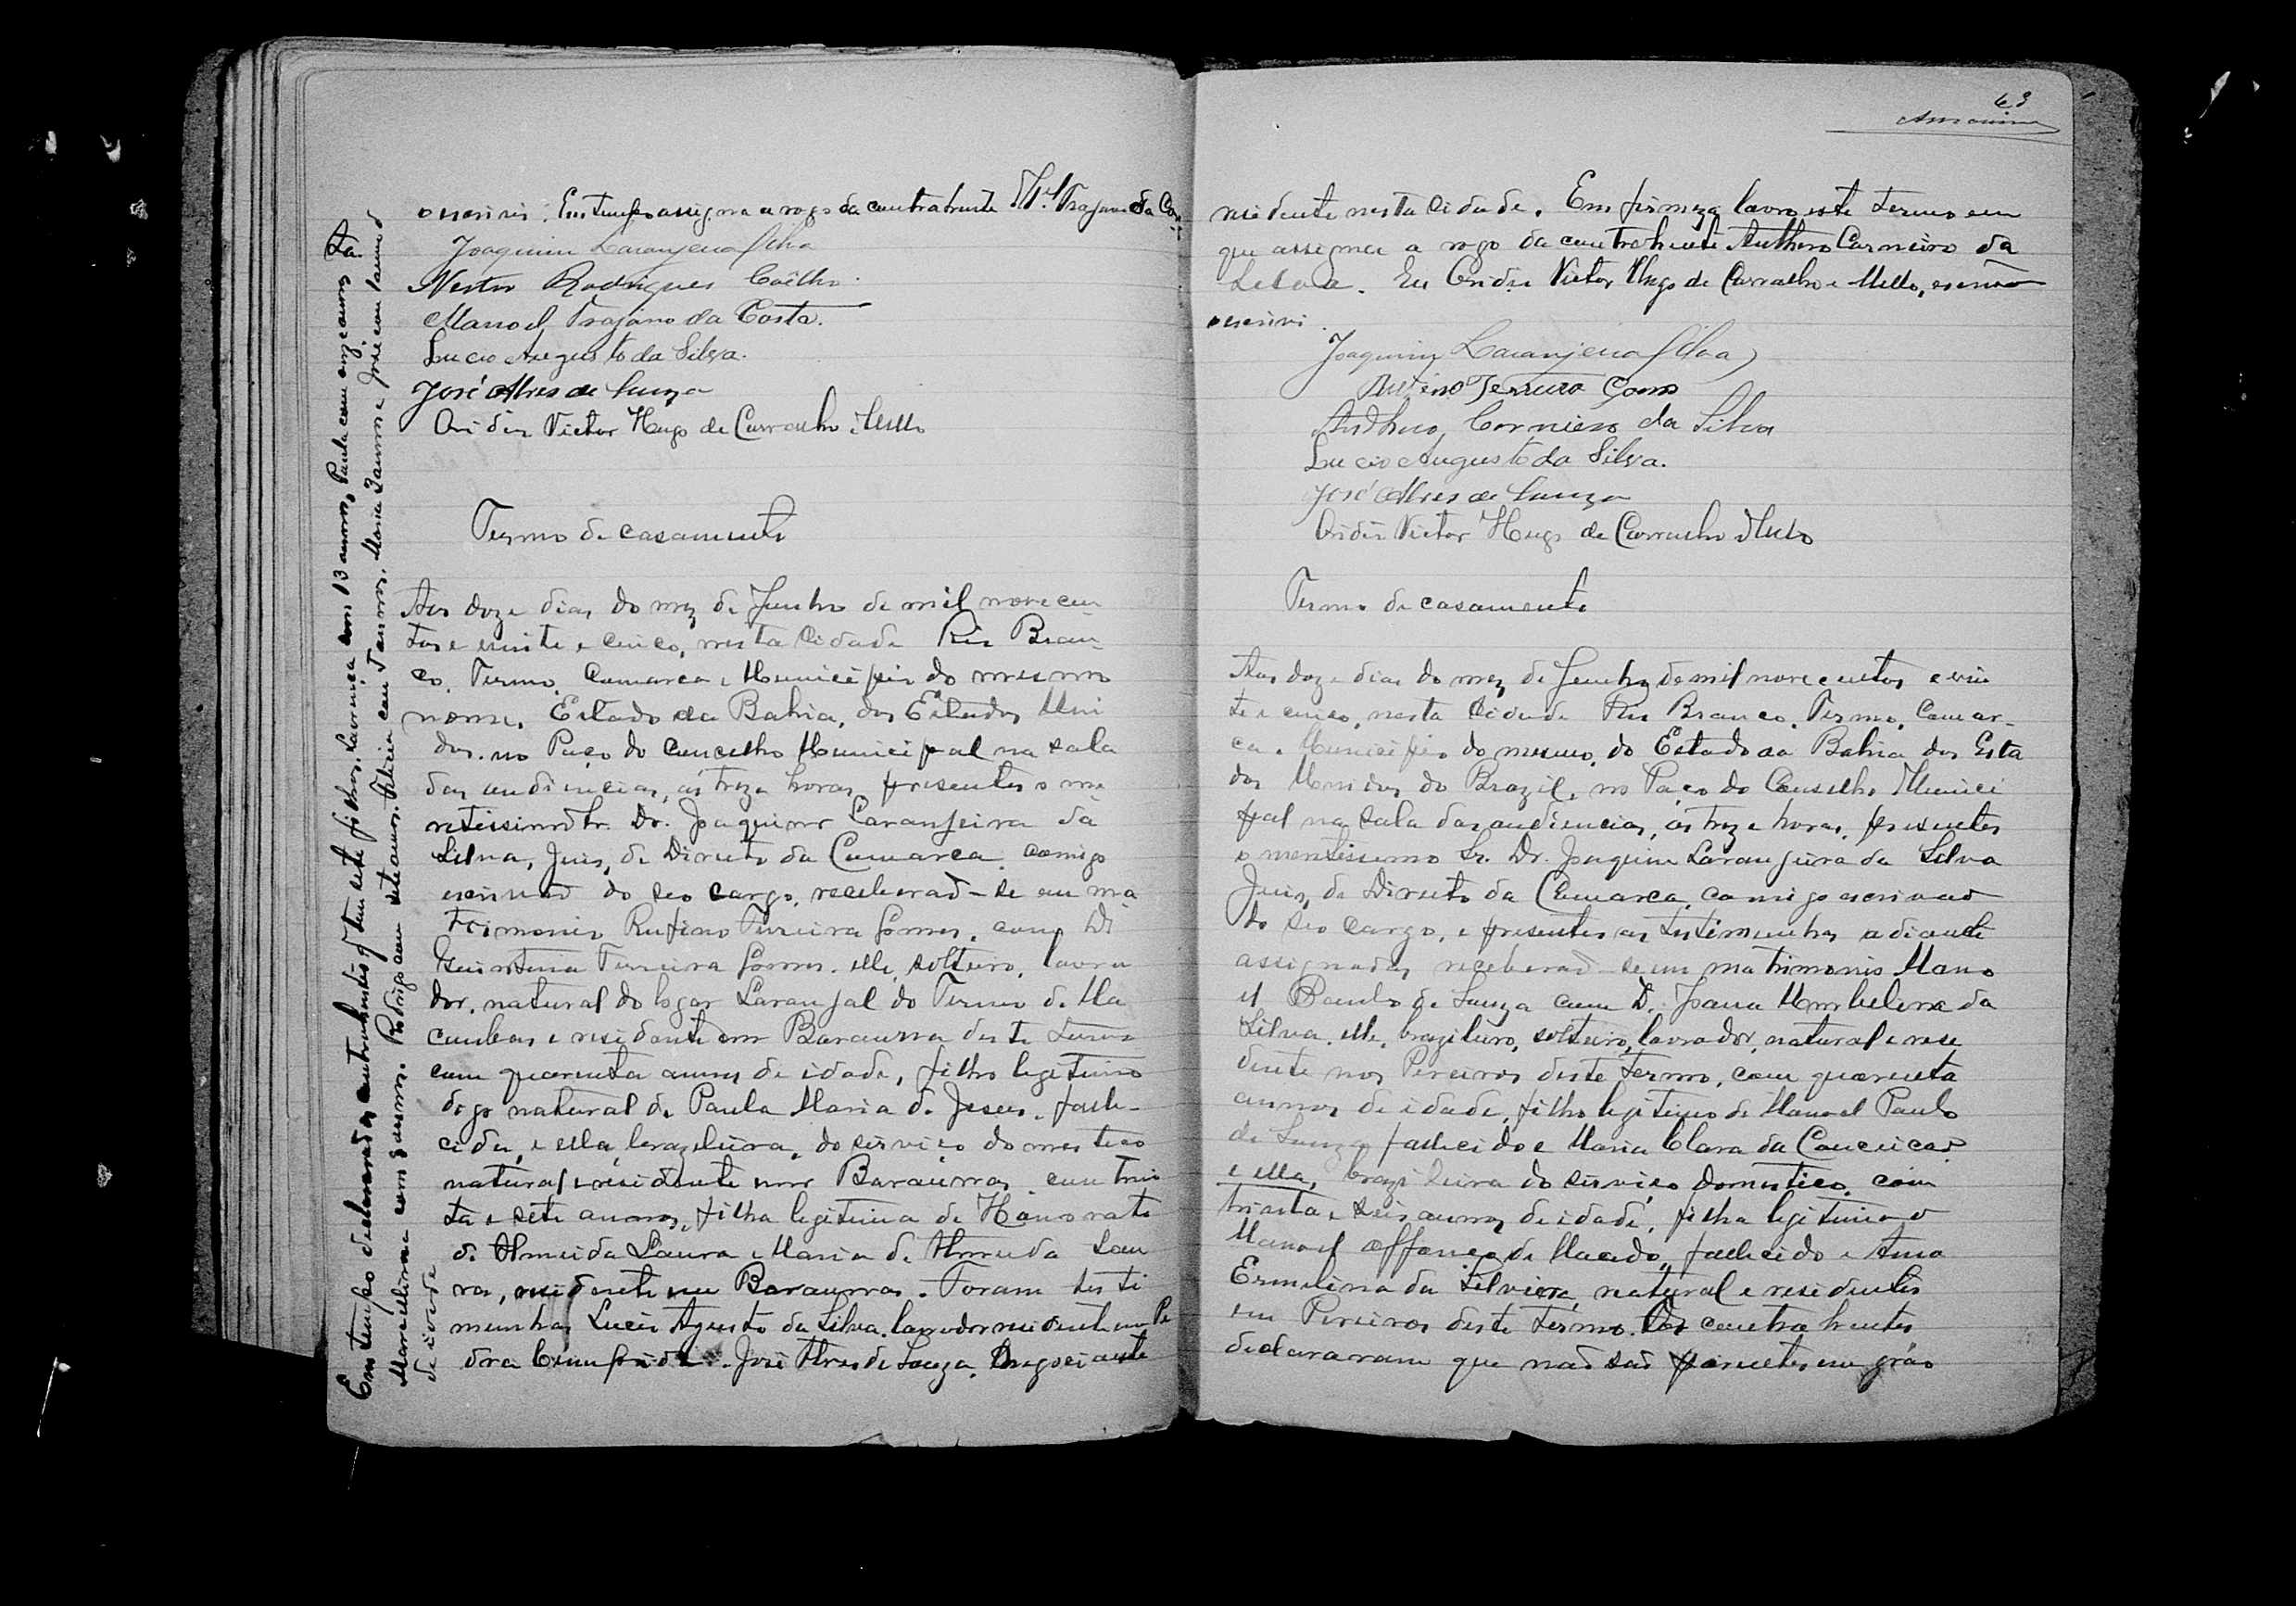 o escrivi. Em tempo assigna a rogo da contratrente Mel Trajano da Cos
Joaquim Laranjeira Silva
Nestor Rodrigues Coêlho.
Manoel Trajano da Costa.
Lucio Augusto da Silva.
José Alves de Souza
Ovidio Victor Hugo de Carvalho e Mello
Termo de casamento
Aos doze dias do mez de Junho de mil novecen
tos e vinte e cinco, nesta cidade Rio Bran
co, Termo, Comarca e Municipio do mesmo
nome, Estado da Bahia, dos Estados Uni
dos, no Paço do Concelho Municipal na sala
das audiencias, ás treze horas, presentes o me
retissimo Sr. Dr. Joaquim Laranjeira da
Silva, Juiz de Direito da Comarca, comigo
escrivaõ do seo cargo, receberaõ-se em ma
trimonio Rufino Ferreira Gomes, com D.
Ferreira Gomes. elle, solteiro, lavra
dor, natural do logar Laranjal do Termo de Ma
caubas e residente em Barauna deste termo
com quarenta annos de idade, filho legitimo
digo natural de Paula Maria de Jesus, falle-
cida, e ella, brazileira, do serviço domestico
natural e residente em Baraunas, com trin
ta e sete annos, filha legitima de Honorato
de Almeida Laura e Maria de Almeida Lau
ra, residente em Baraunas. Foram testi
munhas Lucio Agusto da Silva, lavrador residente na Pe
dra Comprida. José Alves de Souza, negociante
Em tempo declararão os contrahentes q tem sete filhos. com 13 annos, Paula com onze annos
Marcellina com annos. Rodrigo com sete annos. Felicia com annos. Maria 3 annos e José com 1 anno
de idade
63
residente nesta cidade. Em firmeza lavro este termo em
que assigna a rogo da contrahente Anthero Carneiro da
Silva. Eu Ovidio Victor Hugo de Carvalho e Mello, escrivão
o escrivi.
Joaquim Laranjeira Silva
Rufino Ferreira Gomes
Anthero Carneiro da Silva
Lucio Augusto da Silva.
José Alves de Souza
Ovidio Victor Hugo de Carvalho e Mello
Termo de casamento
Aos doze dias do mez de Junho de mil novecentos e vin
te e cinco, nesta cidade Rio Branco, Termo, Comar-
ca e Municipio do mesmo, do Estado da Bahia dos Esta
dos Unidos do Brazil, no Paço do Conselho Munici
pal na sala das audiencias, ás treze horas, presentes
o meretissimo Sr. Dr. Joaquim Laranjeira da Silva
Juiz de Direito da Comarca, comigo escrivaõ
do seo cargo, e presentes as testimunhas adiante
assignadas, receberaõ-se em matrimonio Mano
el Paulo de Souza com D. Joana Umbelina da
Silva. elle, brazileiro, solteiro, lavrador, natural e resi
dente nos Pereiros deste Termo, com quarenta
annos de idade, filho legitimo de Manoel Paulo
de Souza fallecido e Maria Clara da Conceicaõ
e ella, brazileira do serviço domestico, com
trinta e seis annos de idade, filha legitima d
Manoel Affonço de Macedo, fallecido e Anna
Ermelina da Silveira, natural e residentes
em Pereiros deste Termo. Os contrahentes
declararam que naõ saõ parentes em gráo